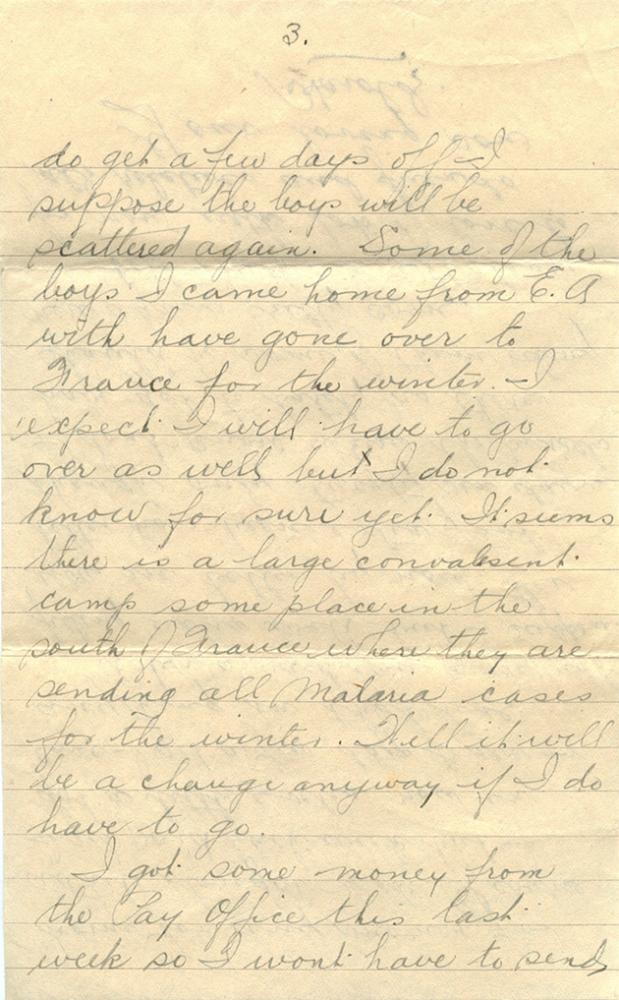 3.
do get a few days off I
suppose the boys will be
scattered again. Some of the
boys I came home from E. A
with have gone over to
France for the winter. I
expect I will have to go
over as well but I do not
know for sure yet. It seems
there is a large convalesent
camp some place in the
south of France where they are
sending all Malaria cases
for the winter. Well it will
be a change anyway if I do
have to go.
I got some money from
the Pay Office this last
week so I wont have to send